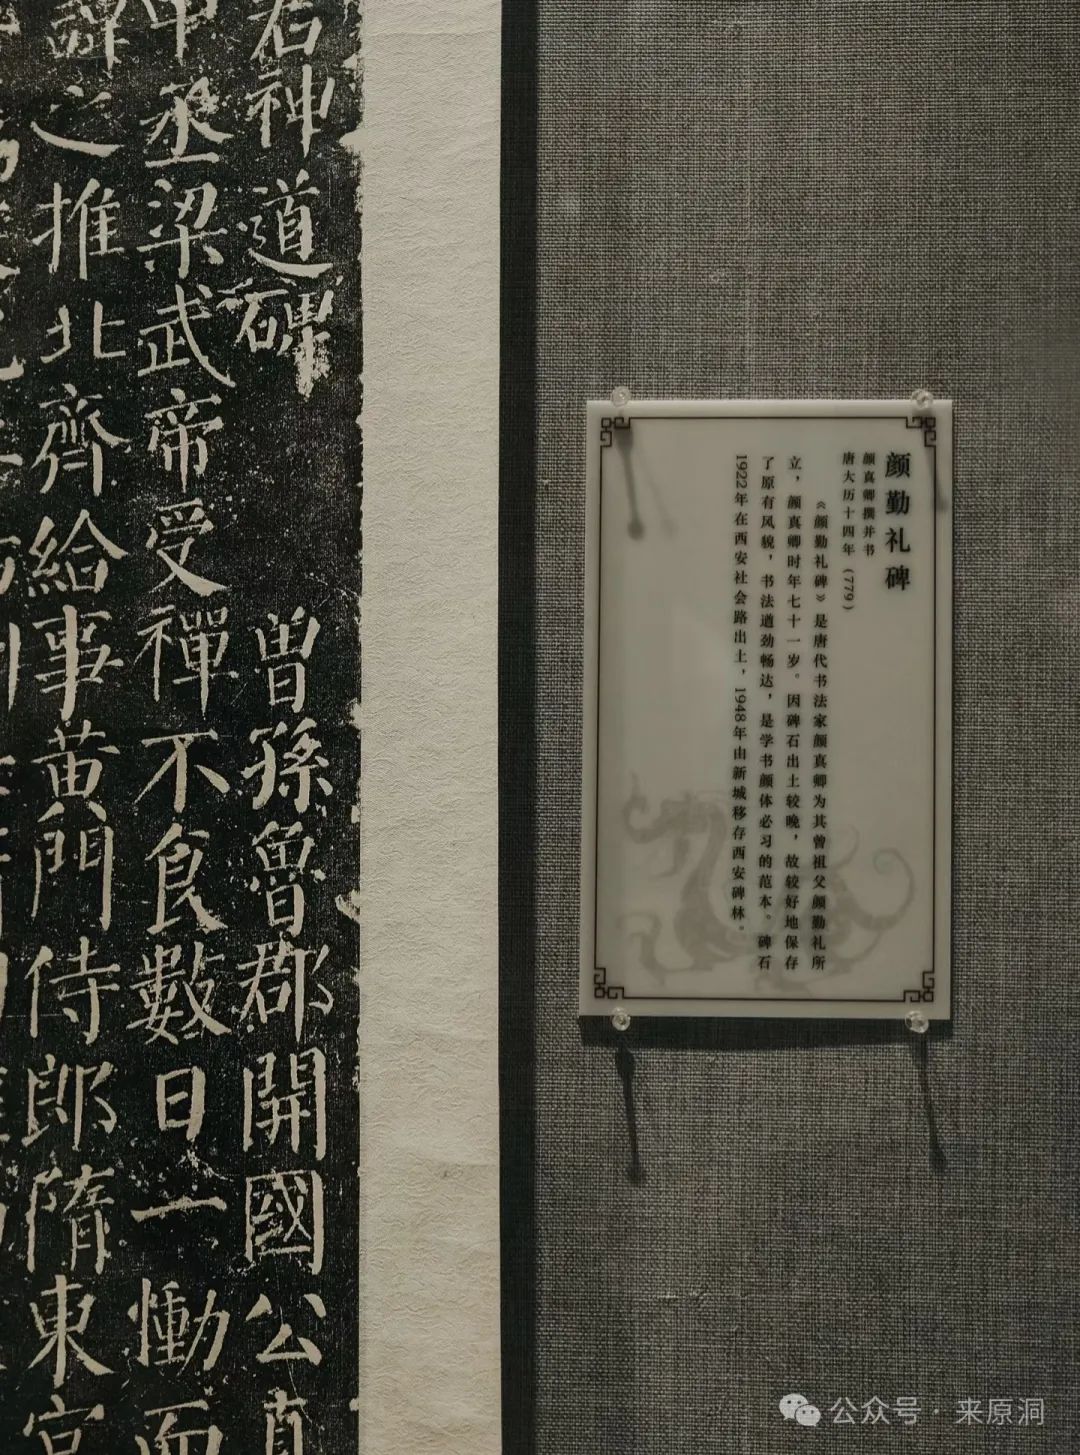 颜勤礼碑
颜真卿撰并书
唐大历十四年（779）
《颜勤礼碑》是唐代书法家颜真卿为其曾祖父颜勤礼所
立，颜真卿时年七十一岁。因碑石出土较晚，故较好地保存
了原有风貌，书法遒劲畅达，是学书颜体必习的范本。碑石
1922年在西安社会路出土，1948年由新城移存西安碑林。
君神道碑 曾孫魯郡開國公真
中丞梁武帝受禪不食數日一慟而
辭之推北齊給事黃門侍郎隋東宮
公众号·来原洞